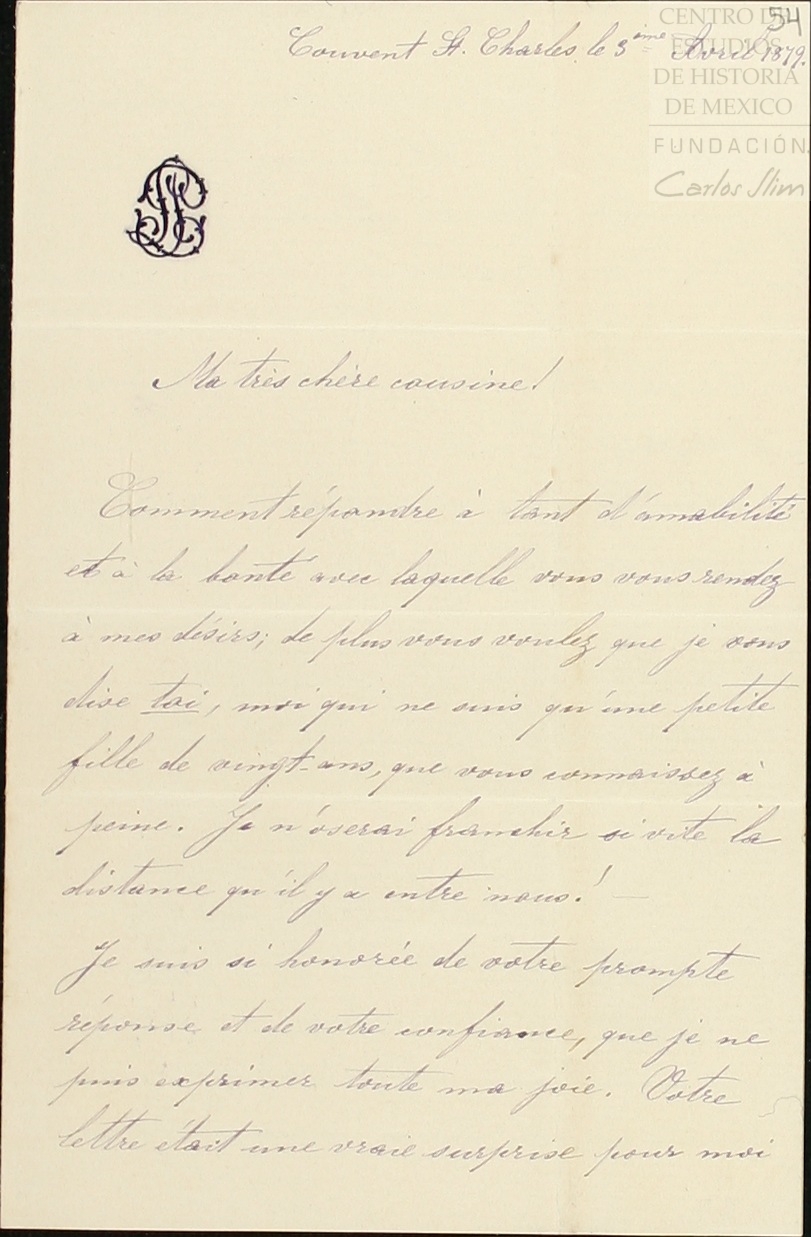 54
CENTRO DE
ESTUDIOS
DE HISTORIA
DE MEXICO
FUNDACIÓN
Carlos Slim
Couvent St. Charles le 3ème Avril 1879.
Ma très chère cousine!
Comment répondre à tant d'amabilité
et à la bonté avec laquelle vous vous rendez
à mes désirs; de plus vous voulez que je vous
dise toi, moi qui ne suis qu'une petite
fille de vingt-ans, que vous connaissez à
peine. Je n'oserai franchir si vite la
distance qu'il y a entre nous! —
Je suis si honorée de votre prompte
réponse et de votre confiance, que je ne
puis exprimer toute ma joie. Votre
lettre était une vraie surprise pour moi